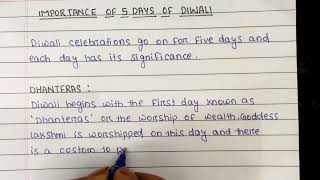 IMPORTANCE OF 5 DAYS OF DIWALI
Diwali celebrations go on for five days and
each day has its significance.
DHANTERAS :
Diwali begins with the first day known as
'Dhanteras' or the worship of wealth. Goddess
Lakshmi is worshipped on this day and there
is a costom to p